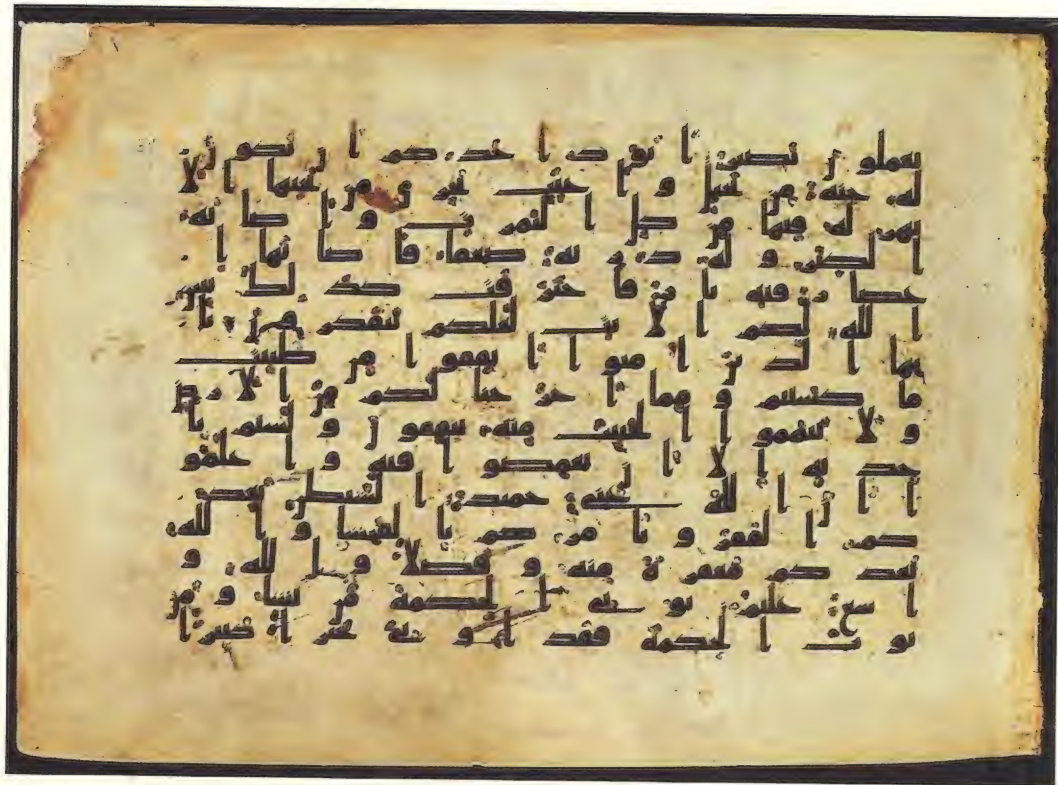 تعملون بصير أيود أحدكم أن تكون
له جنة من نخيل وأعناب تجري من تحتها الأ
نهر له فيها من كل الثمرت وأصابه
الكبر وله ذرية ضعفا فأصابها إ
عصار فيه نار فاحترقت كذلك يبين
الله لكم الايت لعلكم تتفكرون يأ
يها الذين امنوا أنفقوا من طيبت
ما كسبتم ومما أخرجنا لكم من الأرض
ولا تيمموا الخبيث منه تنفقون ولستم بأ
خذيه إلا أن تغمضوا فيه واعلمو
ا أن الله غني حميد الشيطن يعد
كم الفقر ويأمركم بالفحشا والله
يعدكم مغفرة منه وفضلا والله و
اسع عليم يؤتي الحكمة من يشا ومن
يؤت الحكمة فقد أوتي خيرا كثيرا